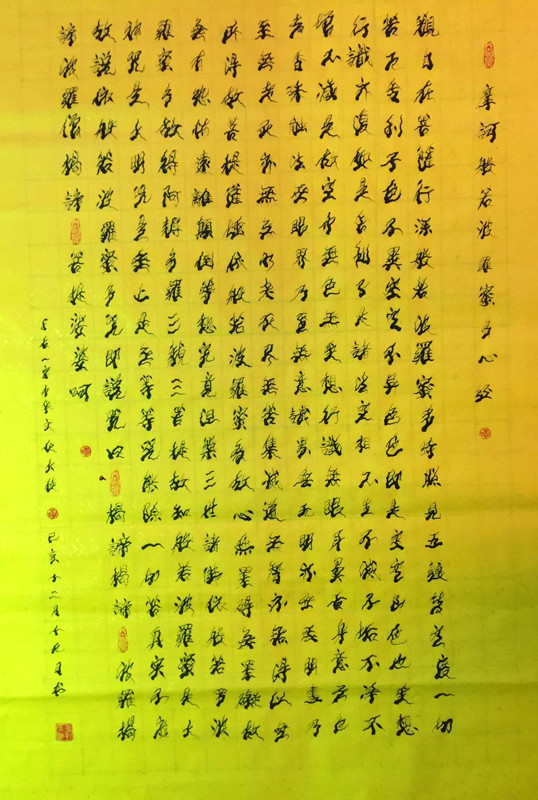 摩訶般若波羅蜜多心經
觀自在菩薩行深般若波羅蜜多時照見五蘊皆空度一切
苦厄舍利子色不異空空不異色色即是空空即是色也受想
行識亦復如是舍利子是諸法空相不生不滅不垢不淨不
增不減是故空中無色無受想行識無眼耳鼻舌身意無色
聲香味觸法無眼界乃至無意識界無無明亦無無明盡乃
至無老死亦無老死無苦集滅道無智亦無得以無
所得故菩提薩埵依般若波羅蜜多故心無罣礙無罣礙故
無有恐怖遠離顛倒夢想究竟涅槃三世諸佛依般若多波
羅蜜多故得阿耨多羅三藐三菩提故知般若波羅蜜是大
神咒是大明咒是無上是無等等咒能除一切苦真實不虛
故說般若波羅蜜多咒即說咒曰揭諦揭諦波羅揭
諦波羅僧揭諦菩提娑婆呵
己亥十二月